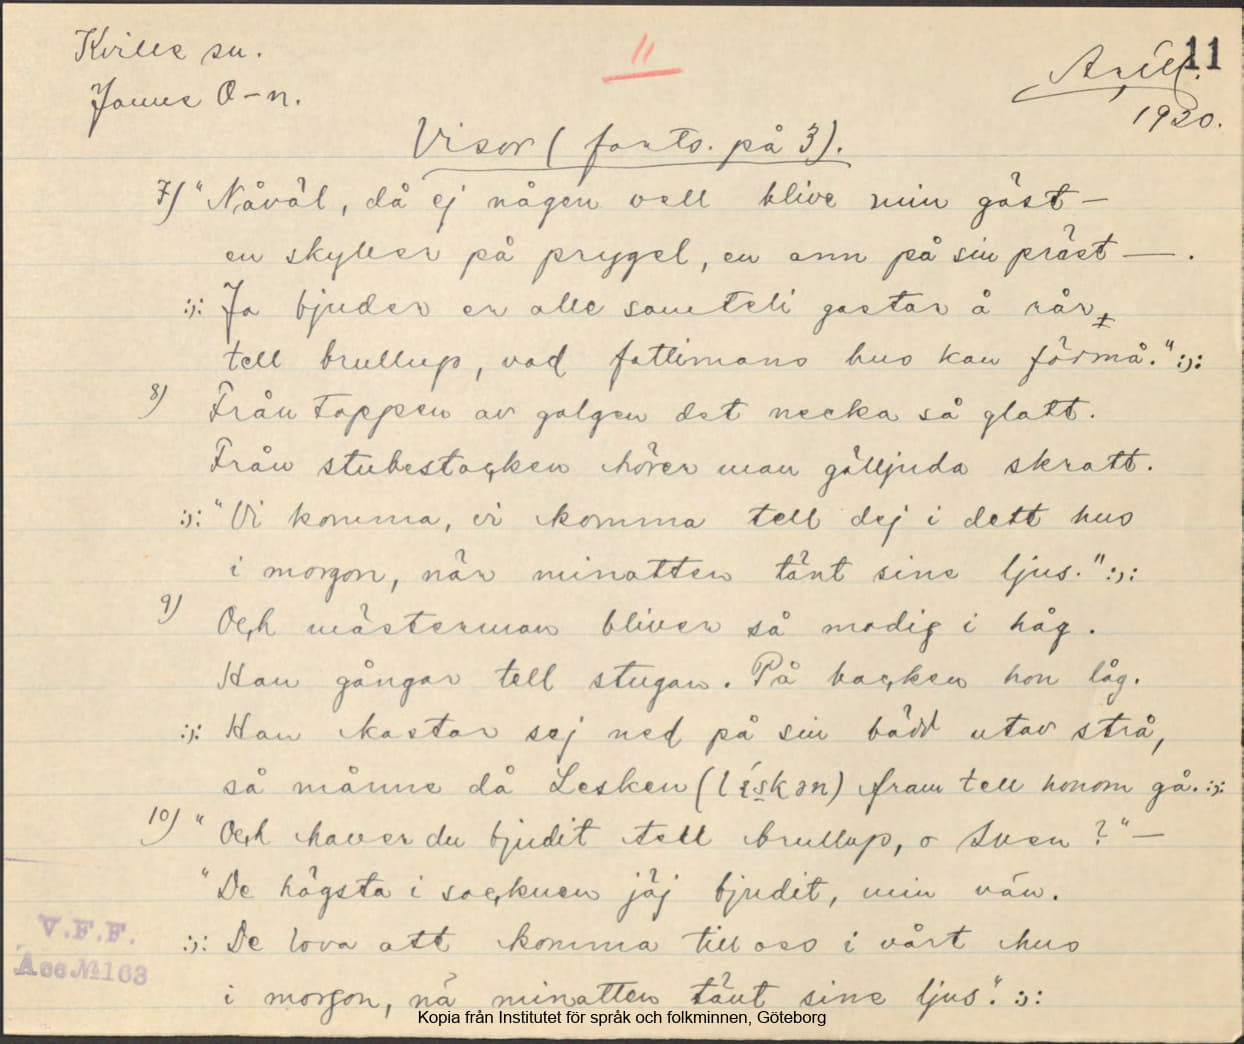 Kville sn.
11
April. 11
Janne O-n.
1920.
Visor (forts. på 3).
7) "Nåväl, då ej någen vell blive min gäst —
en skyller på prygel, en ann på sin präst — .
:,: Ja bjuder er alle samteli gastar å rår
tell brullup, vad fattimans hus kan förmå." :,:
8) Från toppen av galgen det necka så glatt.
Från stubestacken hörer man gälljuda skratt.
:,: "Vi komma, vi komma tell dej i dett hus
i morgon, när minatten tänt sine ljus." :,:
9) Och mästerman bliver så modig i håg.
Han gångar tell stugan. På backen hon låg.
:,: Han kastar sej ned på sin bädd utav strå,
så månne då Lesken (lískən) fram tell honom gå. :,:
10) "Och haver du bjudit tell brullup, o Sven?" —
"De högsta i socknen jäj bjudit, min vän.
:,: De lova att komma till oss i vårt hus
i morgon, nä minatten tänt sine ljus." :,:
V.F.F.
Acc.No163
Kopia från Institutet för språk och folkminnen, Göteborg